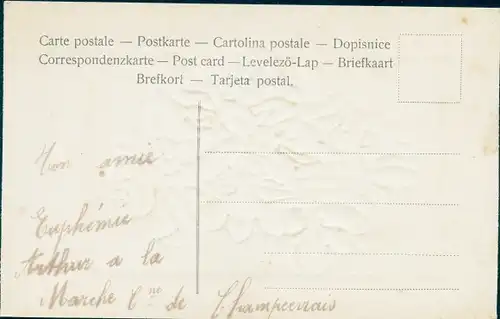 Carte postale — Postkarte — Cartolina postale — Dopisnice
Correspondenzkarte — Post card — Levelező-Lap — Briefkaart
Brefkort — Tarjeta postal.
amie
Euphémie
Arthur a la
Marche Cne de